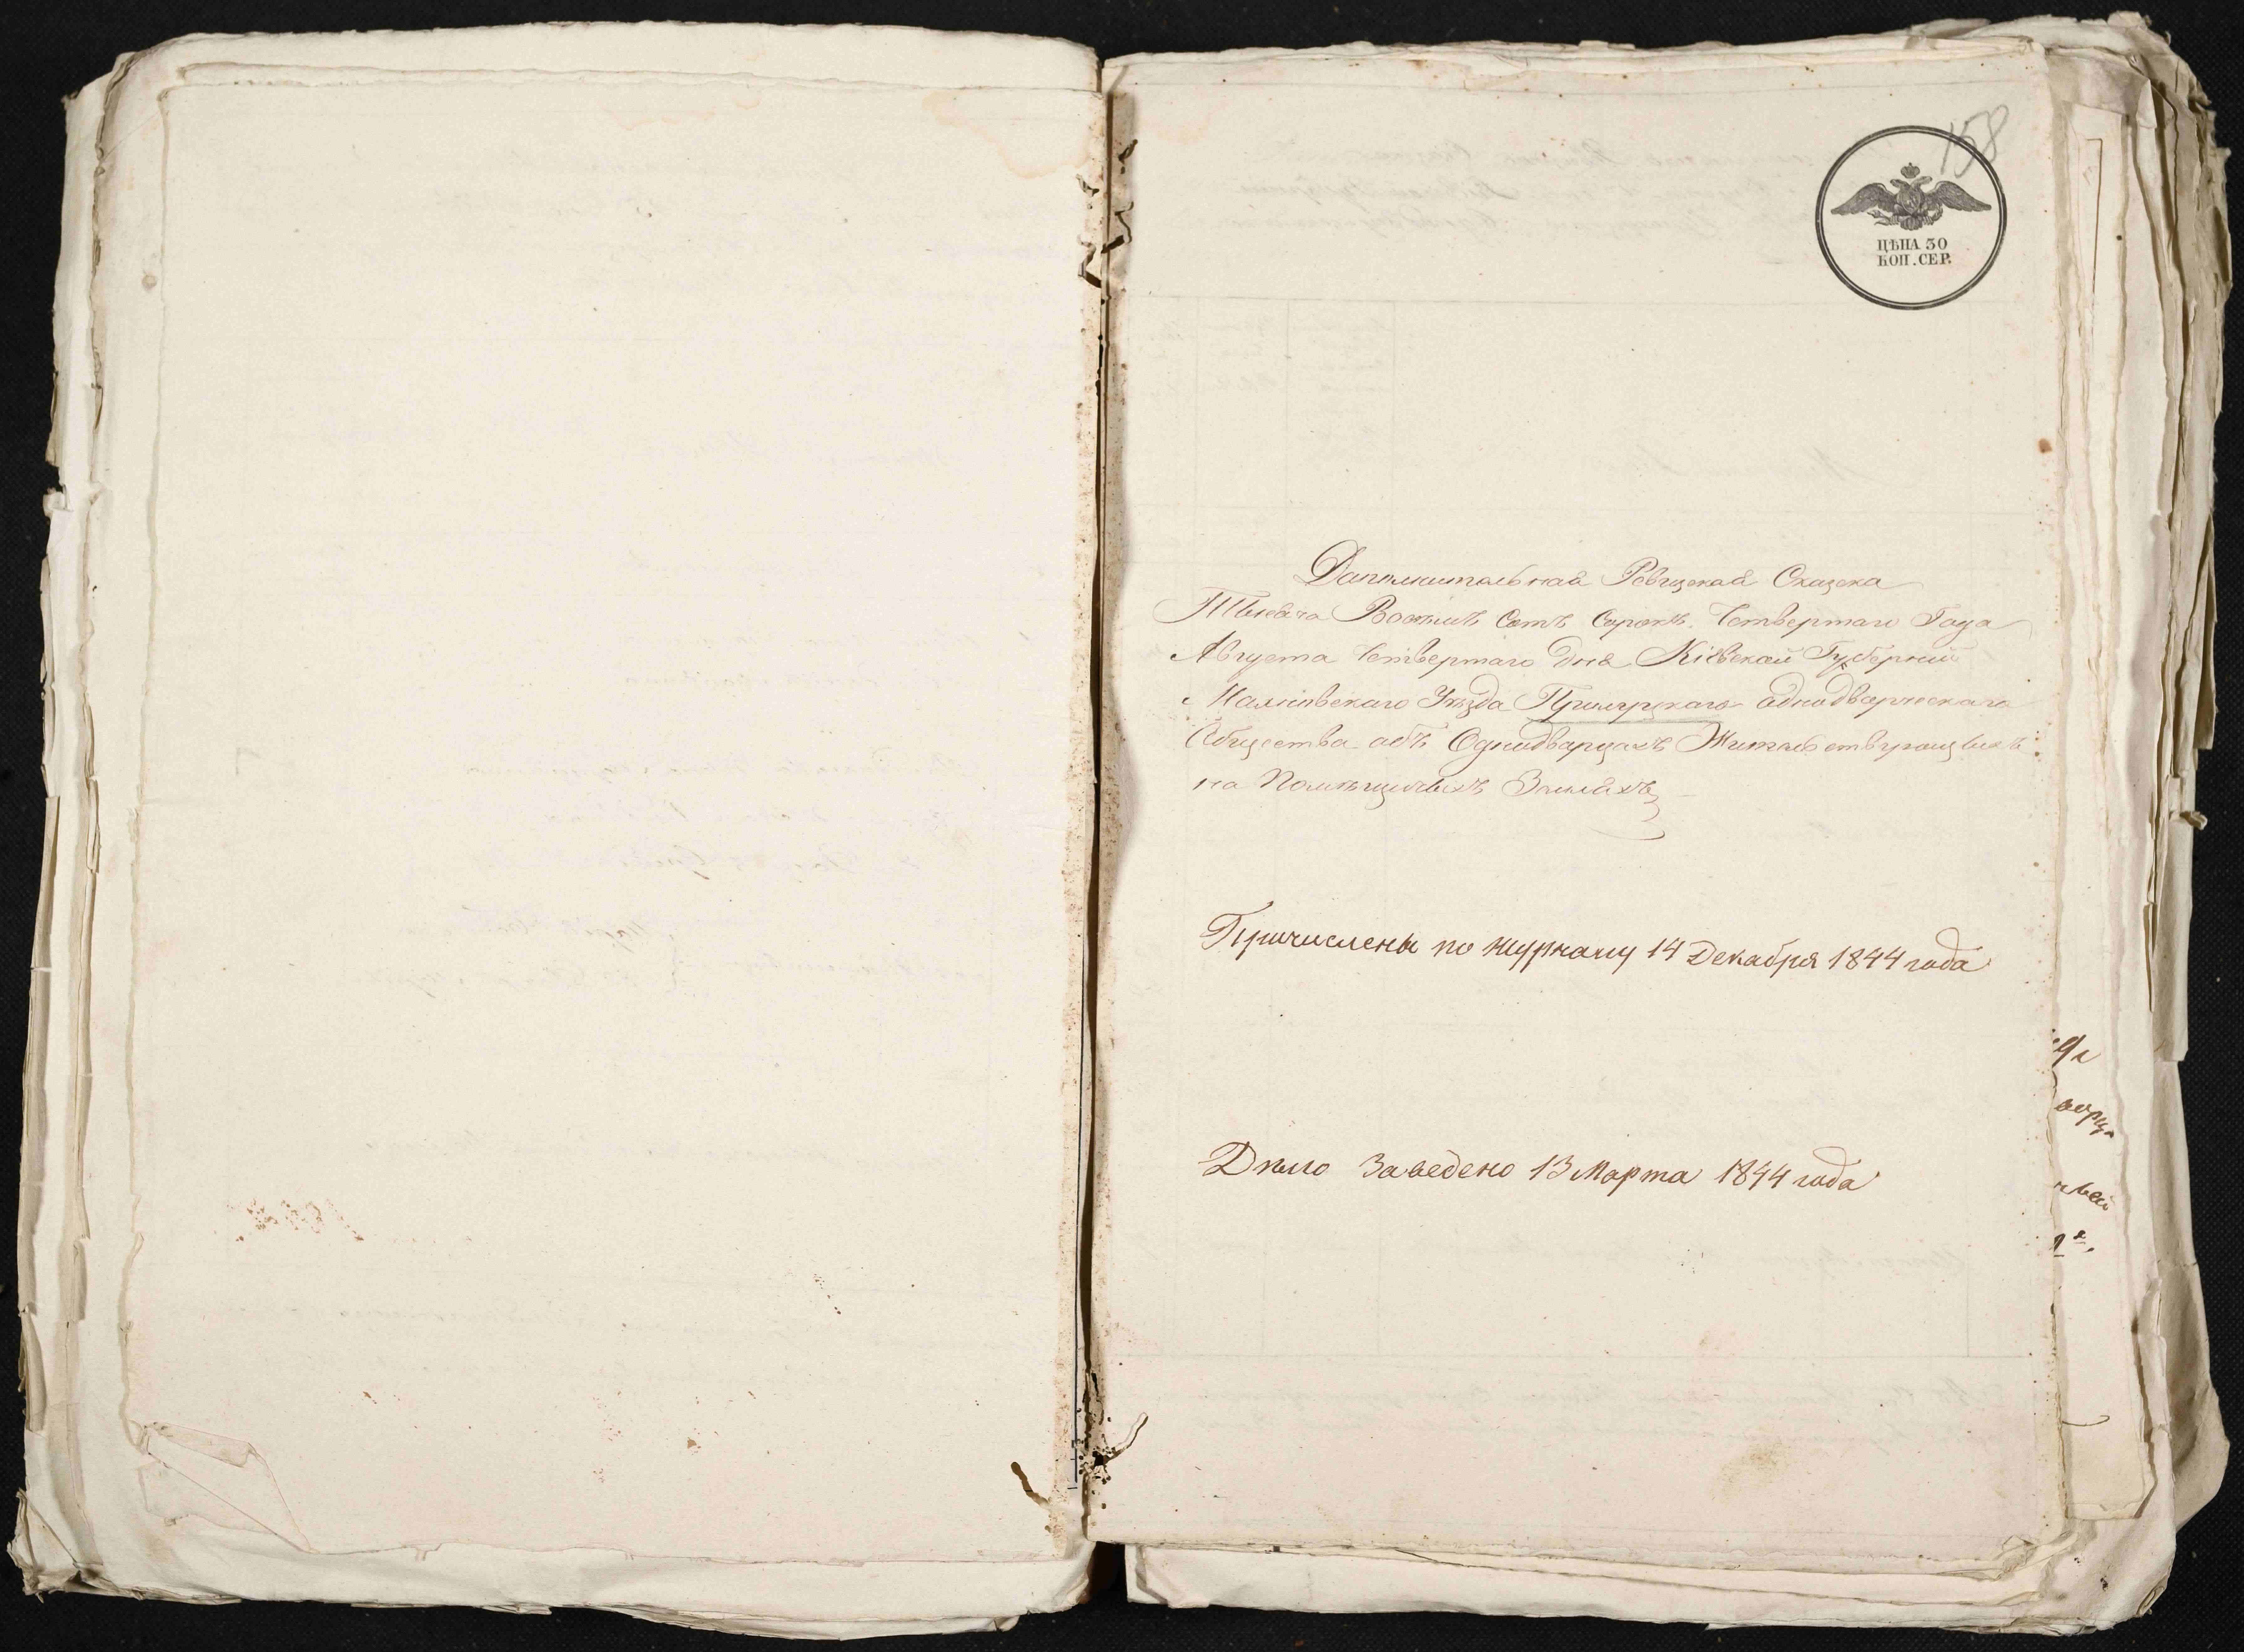 158
ЦѢНА 30
КОП. СЕР.
Дополнительная Ревизская Сказка
Тысяча Восѣмъ Сотъ Сорокъ Четвертаго Года
Августа Четвертаго Дня Кіевской Губерніи
Уѣзда однодворческаго
Общества объ Однодворцахъ Жительствующихъ
на Помѣщичьихъ Земляхъ
Причислены по журналу 14 Декабря 1844 года
Дѣло Заведено 13 Марта 1844 года